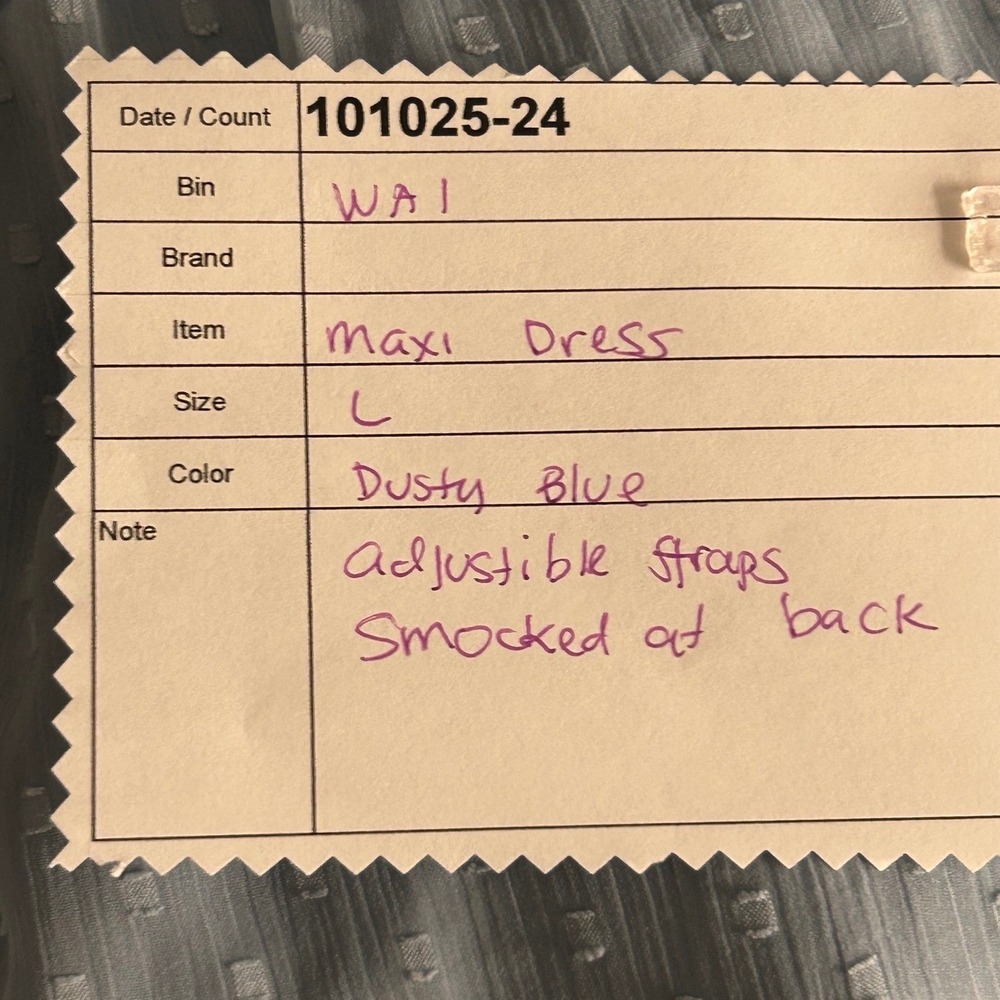 Date / Count 101025-24
Bin WA1
Brand
Item Maxi Dress
Size L
Color Dusty Blue
Note Adjustible straps
Smocked at back